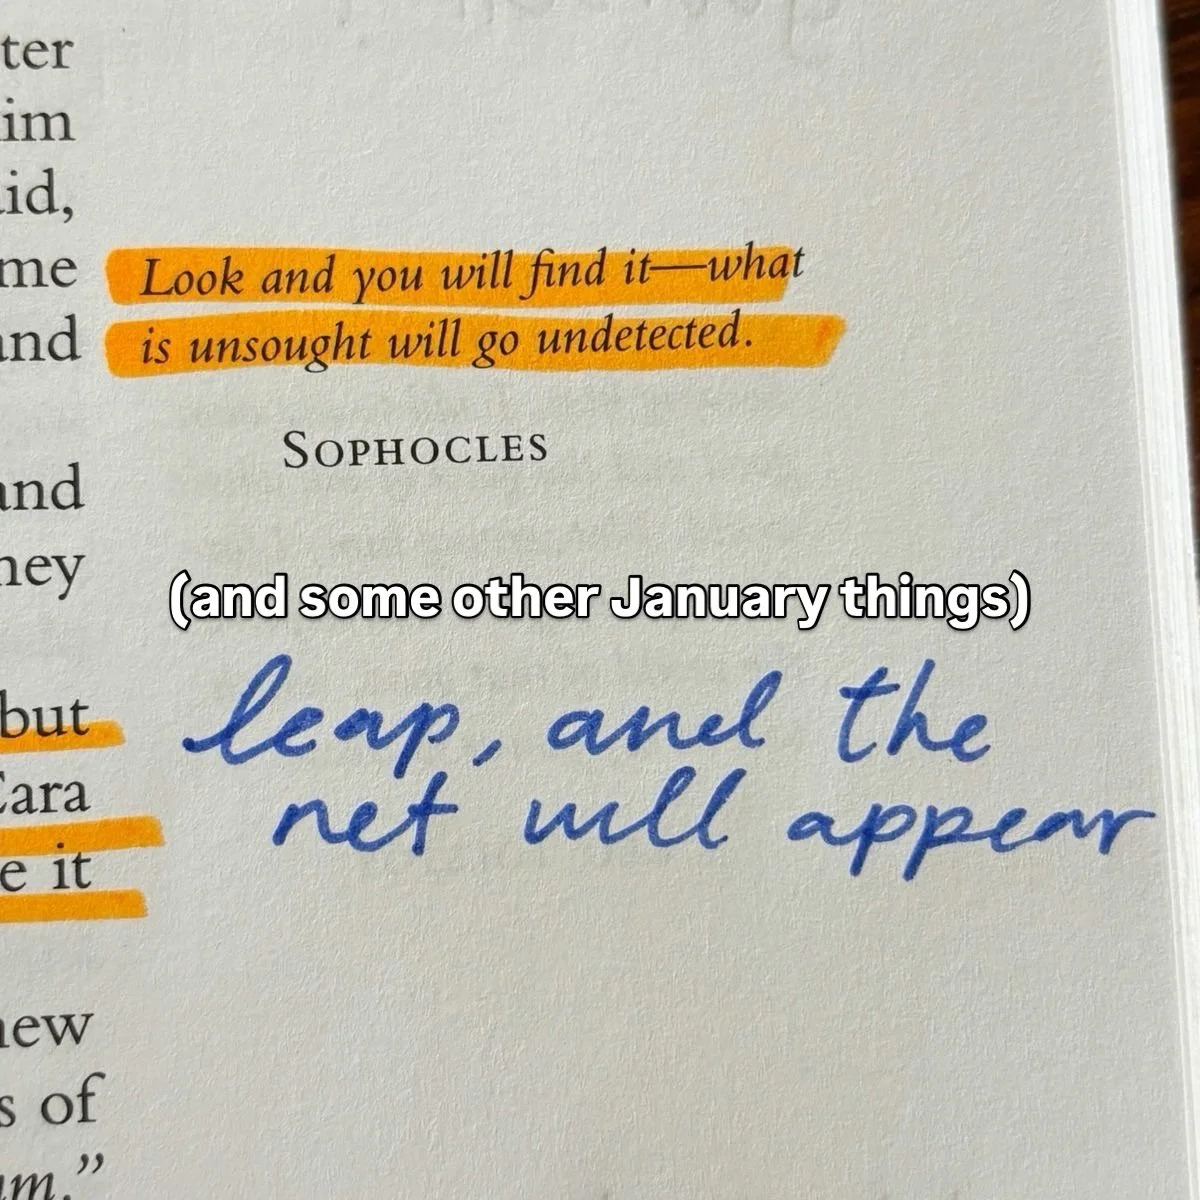 ter
im
aid,
me
and
and
hey
but
Cara
e it
new
s of
um.”
Look and you will find it—what
is unsought will go undetected.
SOPHOCLES
(and some other January things)
leap, and the
net will appear